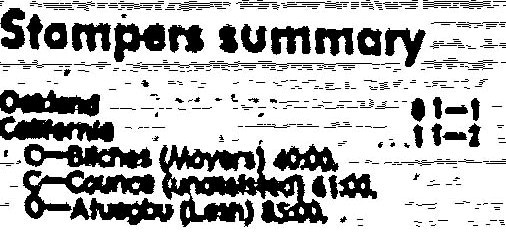 Stompers summary
Oakland 0 1—1
California 1 1—2
O—Bilches (Mayers) 40:00.
C—Counce (unassisted) 61:00.
O—Atuegbu (Lash) 85:00.